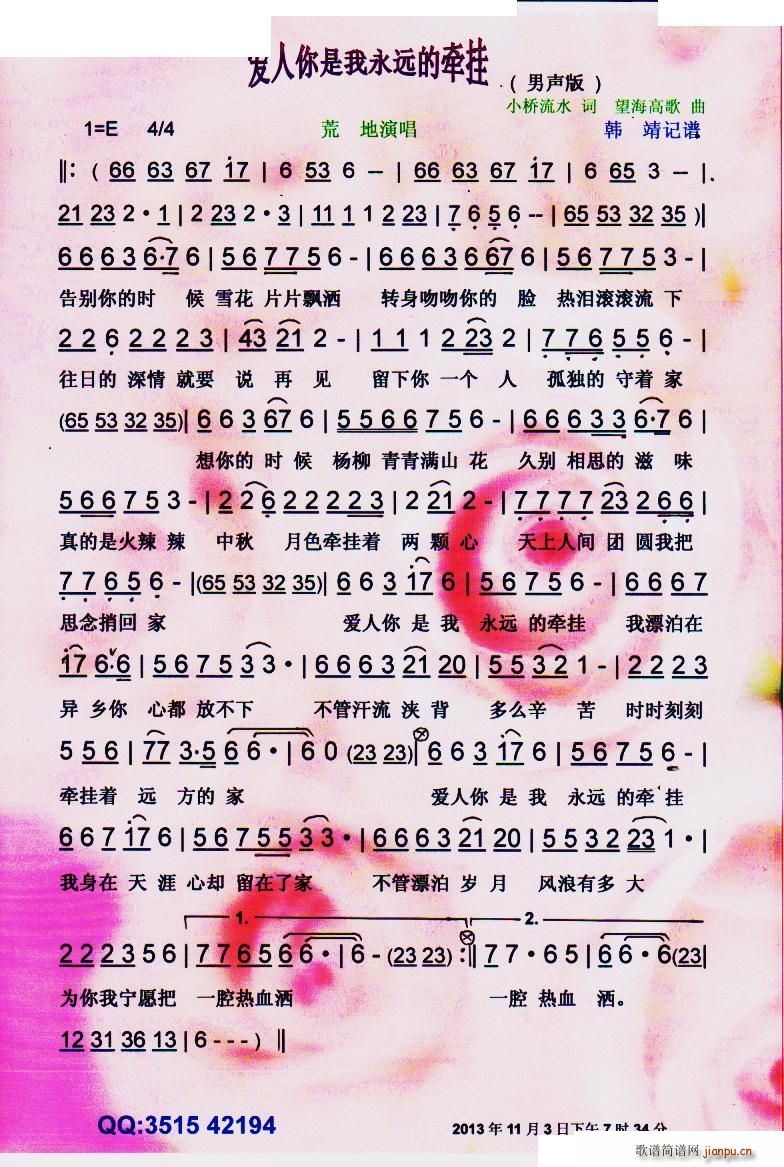 爱人你是我永远的牵挂
( 男声版 )
小桥流水 词 望海高歌 曲
1=E 4/4 荒 地演唱 韩 靖记谱
‖: ( 66 63 67 17 | 6 53 6 – | 66 63 67 17 | 6 65 3 – |
21 23 2 · 1 | 2 23 2 · 3 | 11 1 1 2 23 | 7 6 5 6 -- | 65 53 32 35 )|
6 6 6 3 6·7 6 | 5 6 7 7 5 6 - | 6 6 6 3 6 67 6 | 5 6 7 7 5 3 - |
告别你的时 候 雪花 片片飘洒 转身吻吻你的 脸 热泪滚滚流 下
2 2 6 2 2 2 3 | 43 21 2 - | 1 1 1 2 23 2 | 7 7 6 5 5 6 - |
往日的 深情 就要 说 再 见 留下你 一个 人 孤独的 守着 家
(65 53 32 35)| 6 6 3 67 6 | 5 5 6 6 7 5 6 - | 6 6 6 3 3 6·7 6 |
想你的 时 候 杨柳 青青满山 花 久别 相思的 滋 味
5 6 6 7 5 3 - | 2 2 6 2 2 2 2 3 | 2 21 2 - | 7 7 7 7 23 2 6 6 |
真的是火辣 辣 中秋 月色牵挂着 两 颗 心 天上人间 团 圆我把
7 7 6 5 6 - |(65 53 32 35)| 6 6 3 17 6 | 5 6 7 5 6 - | 6 6 6 7
思念捎回 家 爱人你 是 我 永远 的牵挂 我漂泊在
17 6·6 | 5 6 7 5 3 3 · | 6 6 6 3 21 20 | 5 5 3 2 1 - | 2 2 2 3
异 乡你 心都 放不下 不管汗流 浃 背 多么辛 苦 时时刻刻
5 5 6 | 77 3·5 6 6 · | 6 0 (23 23)| 6 6 3 17 6 | 5 6 7 5 6 - |
牵挂着 远 方的 家 爱人你 是 我 永远 的牵 挂
6 6 7 17 6 | 5 6 7 5 5 3 3 · | 6 6 6 3 21 20 | 5 5 3 2 23 1 · |
我身在 天 涯 心却 留在了家 不管漂泊 岁 月 风浪有多 大
1. 2.
2 2 2 3 5 6 | 7 7 6 5 6 6 · | 6 - (23 23) :‖ 7 7 · 6 5 | 6 6 · 6 (23|
为你我宁愿把 一腔热血洒 一腔 热血 洒。
12 31 36 13 | 6 - - - ) ‖
QQ:3515 42194 2013 年 11 月 3 日下午 7 时 34 分
歌谱简谱网
jianpu.cn